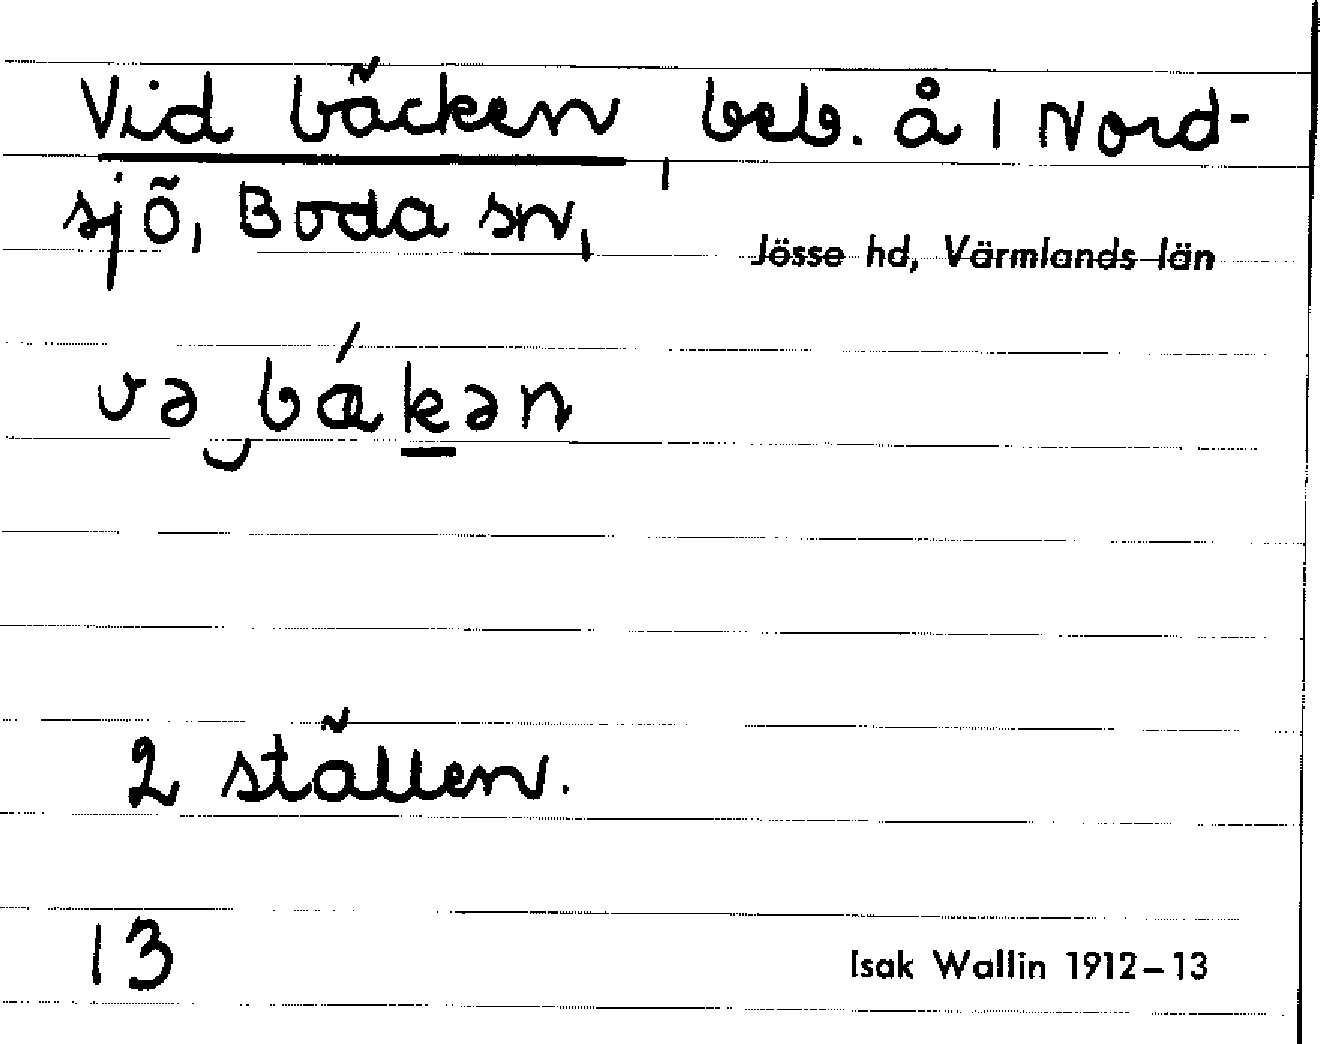 Vid bäcken, beb. å 1 Nord-
sjö, Boda sn,
Jösse hd, Värmlands län
və bákən
2 ställen.
13
Isak Wallin 1912–13